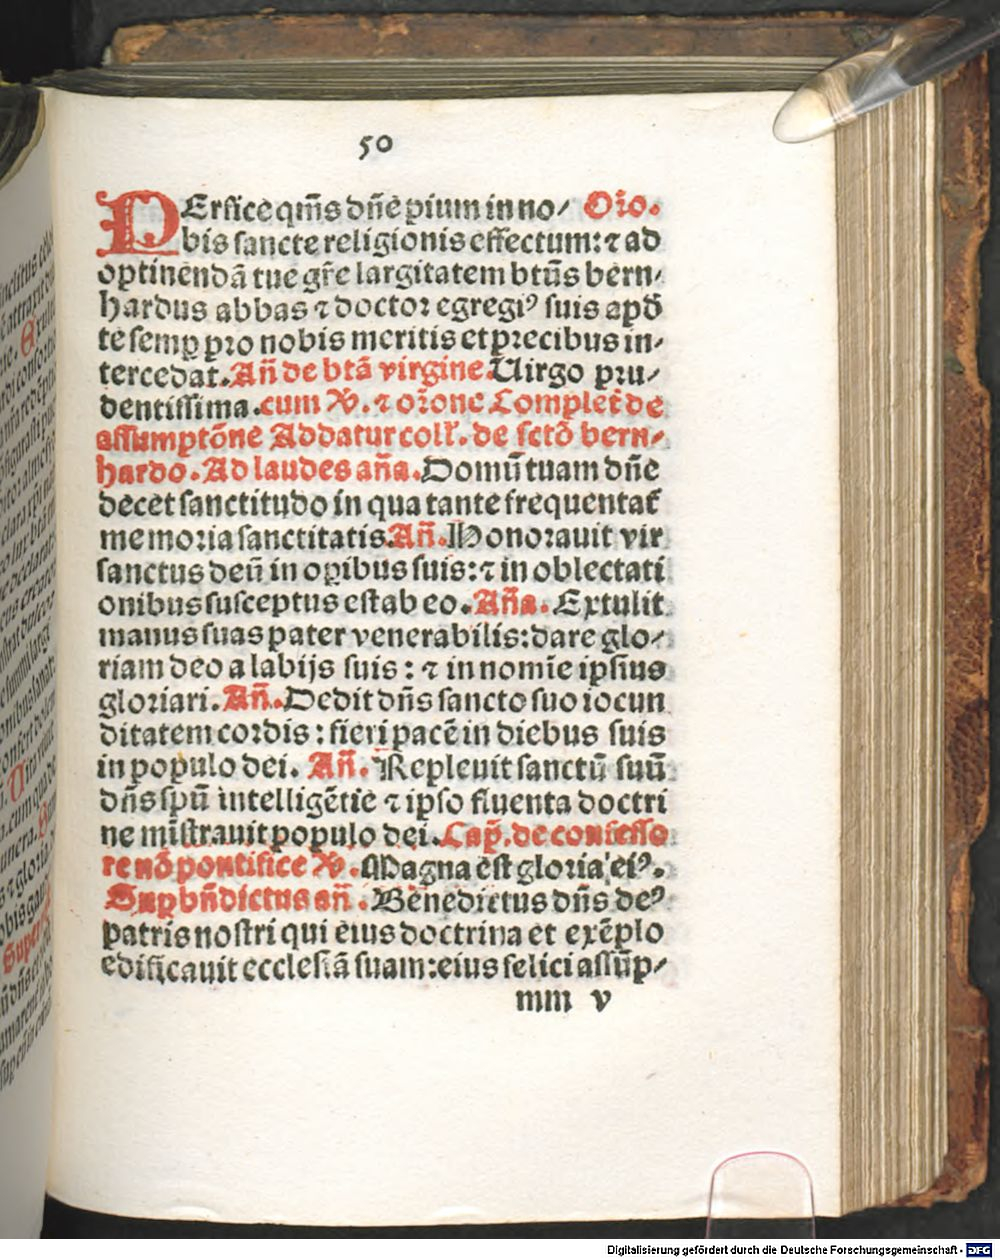 50
PErfice qm̃s dñe pium in no/ Or̃o.
bis sancte religionis effectum: ⁊ ad
optinendā tue gr̃e largitatem btũs bern/
hardus abbas ⁊ doctor egregiꝰ suis apđ
te semꝑ pro nobis meritis et precibus in/
tercedat. Añ de btã virgine. Uirgo pru/
dentissima. cum ℣. ⁊ or̃one Complet̃ de
assumptõne Addatur coll̃. de sctõ bern/
hardo. Ad laudes aña. Domũ tuam dñe
decet sanctitudo in qua tante frequentat̃
memoria sanctitatis. Añ. Honorauit vir
sanctus deũ in opibus suis: ⁊ in oblectati
onibus susceptus est ab eo. Aña. Extulit
manus suas pater venerabilis: dare glo/
riam deo a labijs suis: ⁊ in nomĩe ipsius
gloriari. Añ. Dedit dñs sancto suo iocun
ditatem cordis: fieri pacẽ in diebus suis
in populo dei. Añ. Repleuit sanctũ suũ
dñs spũ intelligẽtie ⁊ ipso fluenta doctri
ne mĩstrauit populo dei. Cap̃. de confesso
re nõ pontifice ℣. Magna est gloria eiꝰ.
Suꝑ bñdictus añ. Benedictus dñs deꝰ
patris nostri qui eius doctrina et exẽplo
edificauit ecclesiã suam: eius felici assũp/
mm v
Digitalisierung gefördert durch die Deutsche Forschungsgemeinschaft - DFG